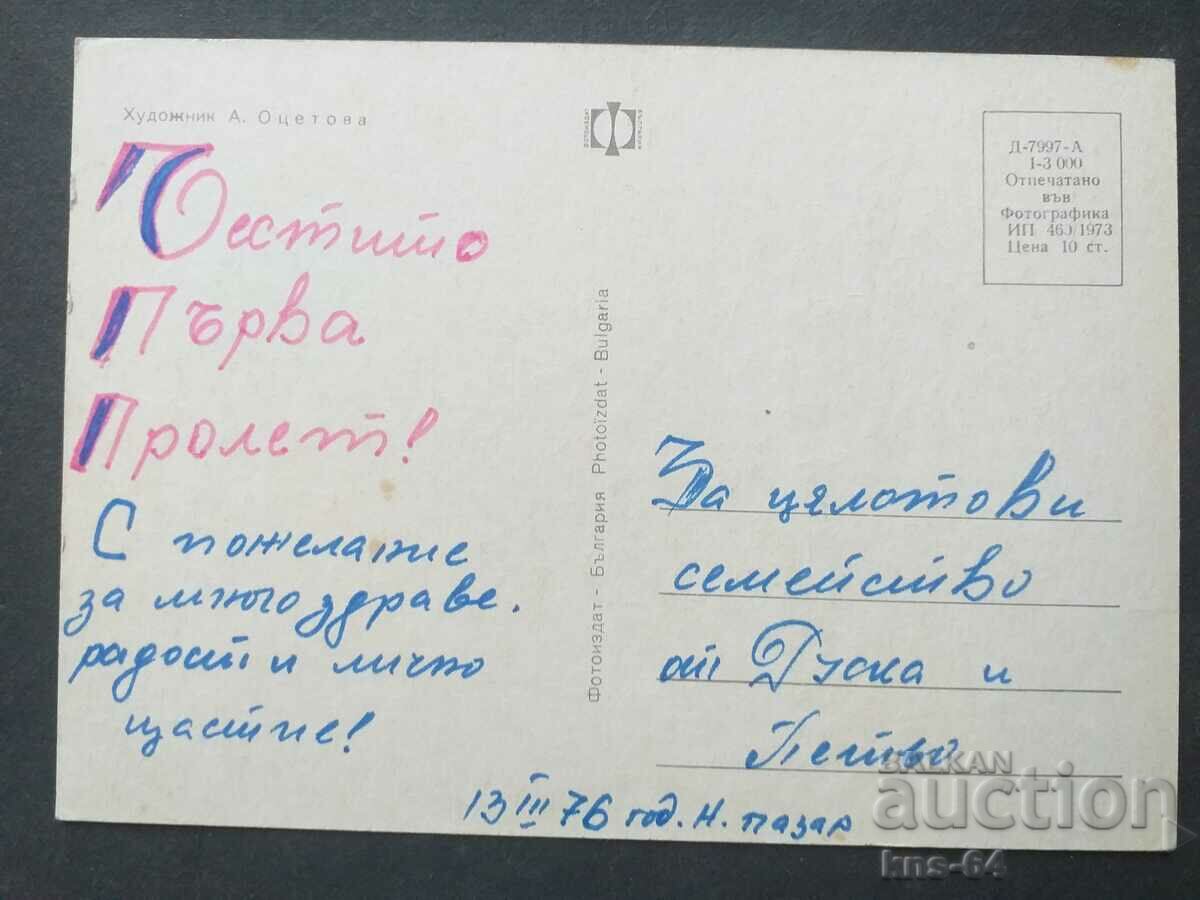 Художник А. Оцетова
Честито
Първа
Пролет!
С пожелание
за много здраве.
радост и лично
щастие!
13 III 76 год. Н. пазар
Фотоиздат - България Photoizdat - Bulgaria
Д-7997-А
1-3 000
Отпечатано
във
Фотографика
ИП 460/1973
Цена 10 ст.
За цялото ви
семейство
от Руска и
Петьо
BALKAN
auction
kns-64